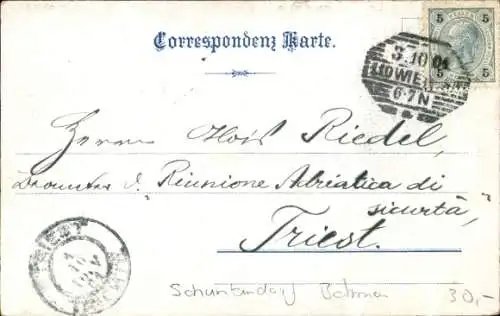 Correspondenz Karte.
5 5
5 5
3.10.01
1/10 WIEN
6-7N
Herrn Alois Riedel,
Beamter d. "Riunione Adriatica di
sicurtà,"
Triest.
TRIEST
30,-